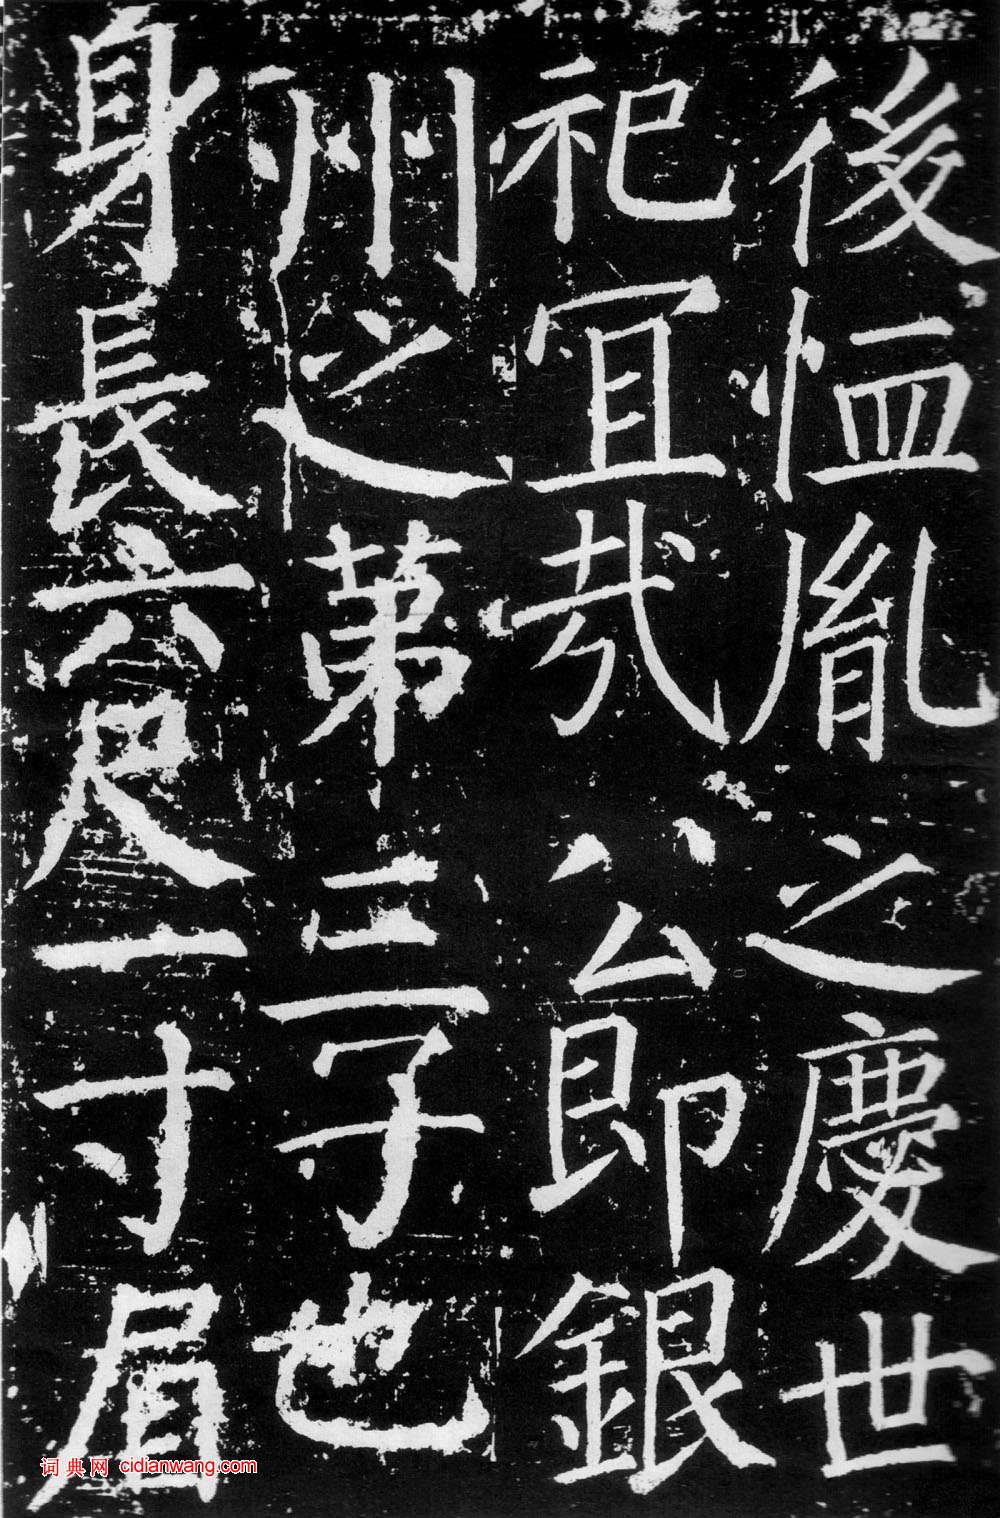 後恤胤之慶世
祀宜哉公即銀
州之第三子也
身長六尺一寸眉
词典网 cidianwang.com